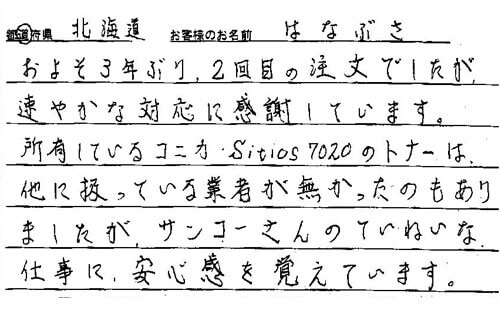 都道府県 北海道 お客様のお名前 はなぶさ
およそ3年ぶり,2回目の注文でしたが,
速やかな対応に感謝しています。
所有しているコニカ・Sitios7020のトナーは,
他に扱っている業者が無かったのもあり
ましたが,サンコーさんのていねいな,
仕事に,安心感を覚えています。